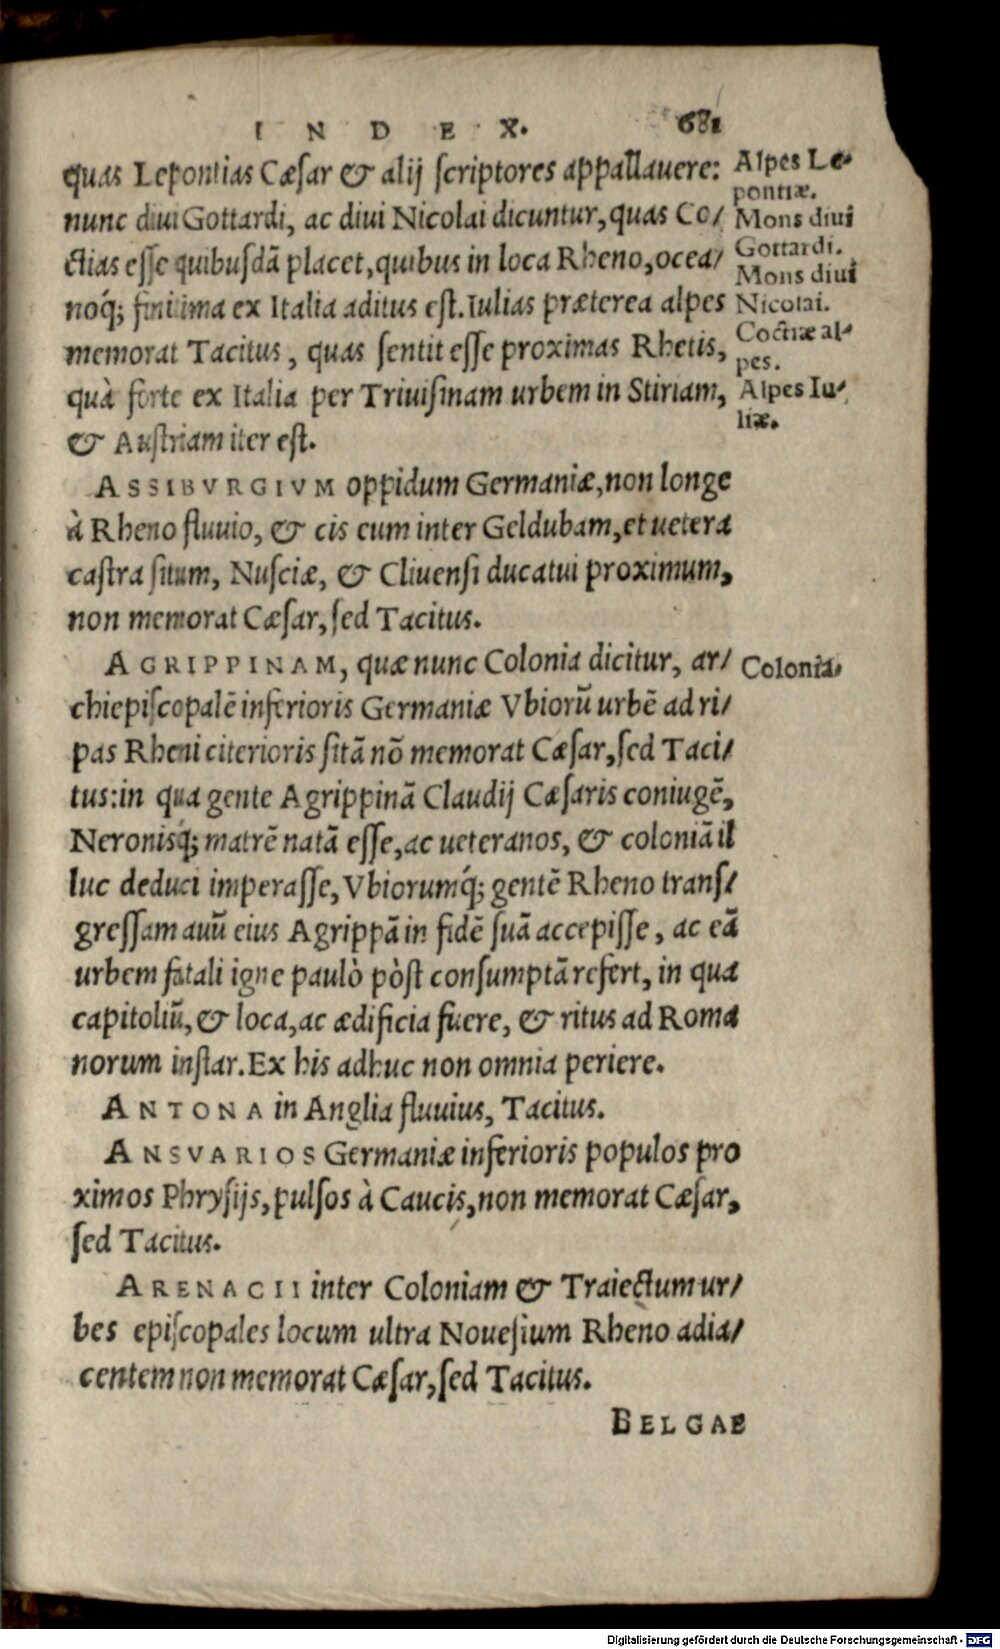 INDEX. 681
quas Lepontias Cæsar & alij scriptores appallauere:
nunc diui Gottardi, ac diui Nicolai dicuntur, quas Co/
ctias esse quibusdā placet, quibus in loca Rheno, ocea/
noq́; finitima ex Italia aditus est. Iulias præterea alpes
memorat Tacitus, quas sentit esse proximas Rhetis,
quà forte ex Italia per Triuisinam urbem in Stiriam,
& Austriam iter est.
Alpes Le-
pontiæ.
Mons diui
Gottardi.
Mons diui
Nicolai.
Coctiæ al-
pes.
Alpes Iu-
liæ.
ASSIBVRGIVM oppidum Germaniæ, non longe
à Rheno fluuio, & cis eum inter Geldubam, et uetera
castra situm, Nusciæ, & Cliuensi ducatui proximum,
non memorat Cæsar, sed Tacitus.
AGRIPPINAM, quæ nunc Colonia dicitur, ar/
Colonia.
chiepiscopalē inferioris Germaniæ Vbiorū urbē ad ri/
pas Rheni citerioris sitā nō memorat Cæsar, sed Taci/
tus: in qua gente Agrippinā Claudij Cæsaris coniugē,
Neronisq́; matrē natā esse, ac ueteranos, & coloniā il
luc deduci imperasse, Vbiorumq́; gentē Rheno trans/
gressam auū eius Agrippā in fidē suā accepisse, ac eā
urbem fatali igne paulò pòst consumptā refert, in qua
capitoliū, & loca, ac ædificia fuere, & ritus ad Roma
norum instar. Ex his adhuc non omnia periere.
ANTONA in Anglia fluuius, Tacitus.
ANSVARIOS Germaniæ inferioris populos pro
ximos Phrysijs, pulsos à Caucis, non memorat Cæsar,
sed Tacitus.
ARENACII inter Coloniam & Traiectum ur/
bes episcopales locum ultra Nouesium Rheno adia/
centem non memorat Cæsar, sed Tacitus.
BELGAE
Digitalisierung gefördert durch die Deutsche Forschungsgemeinschaft - DFG